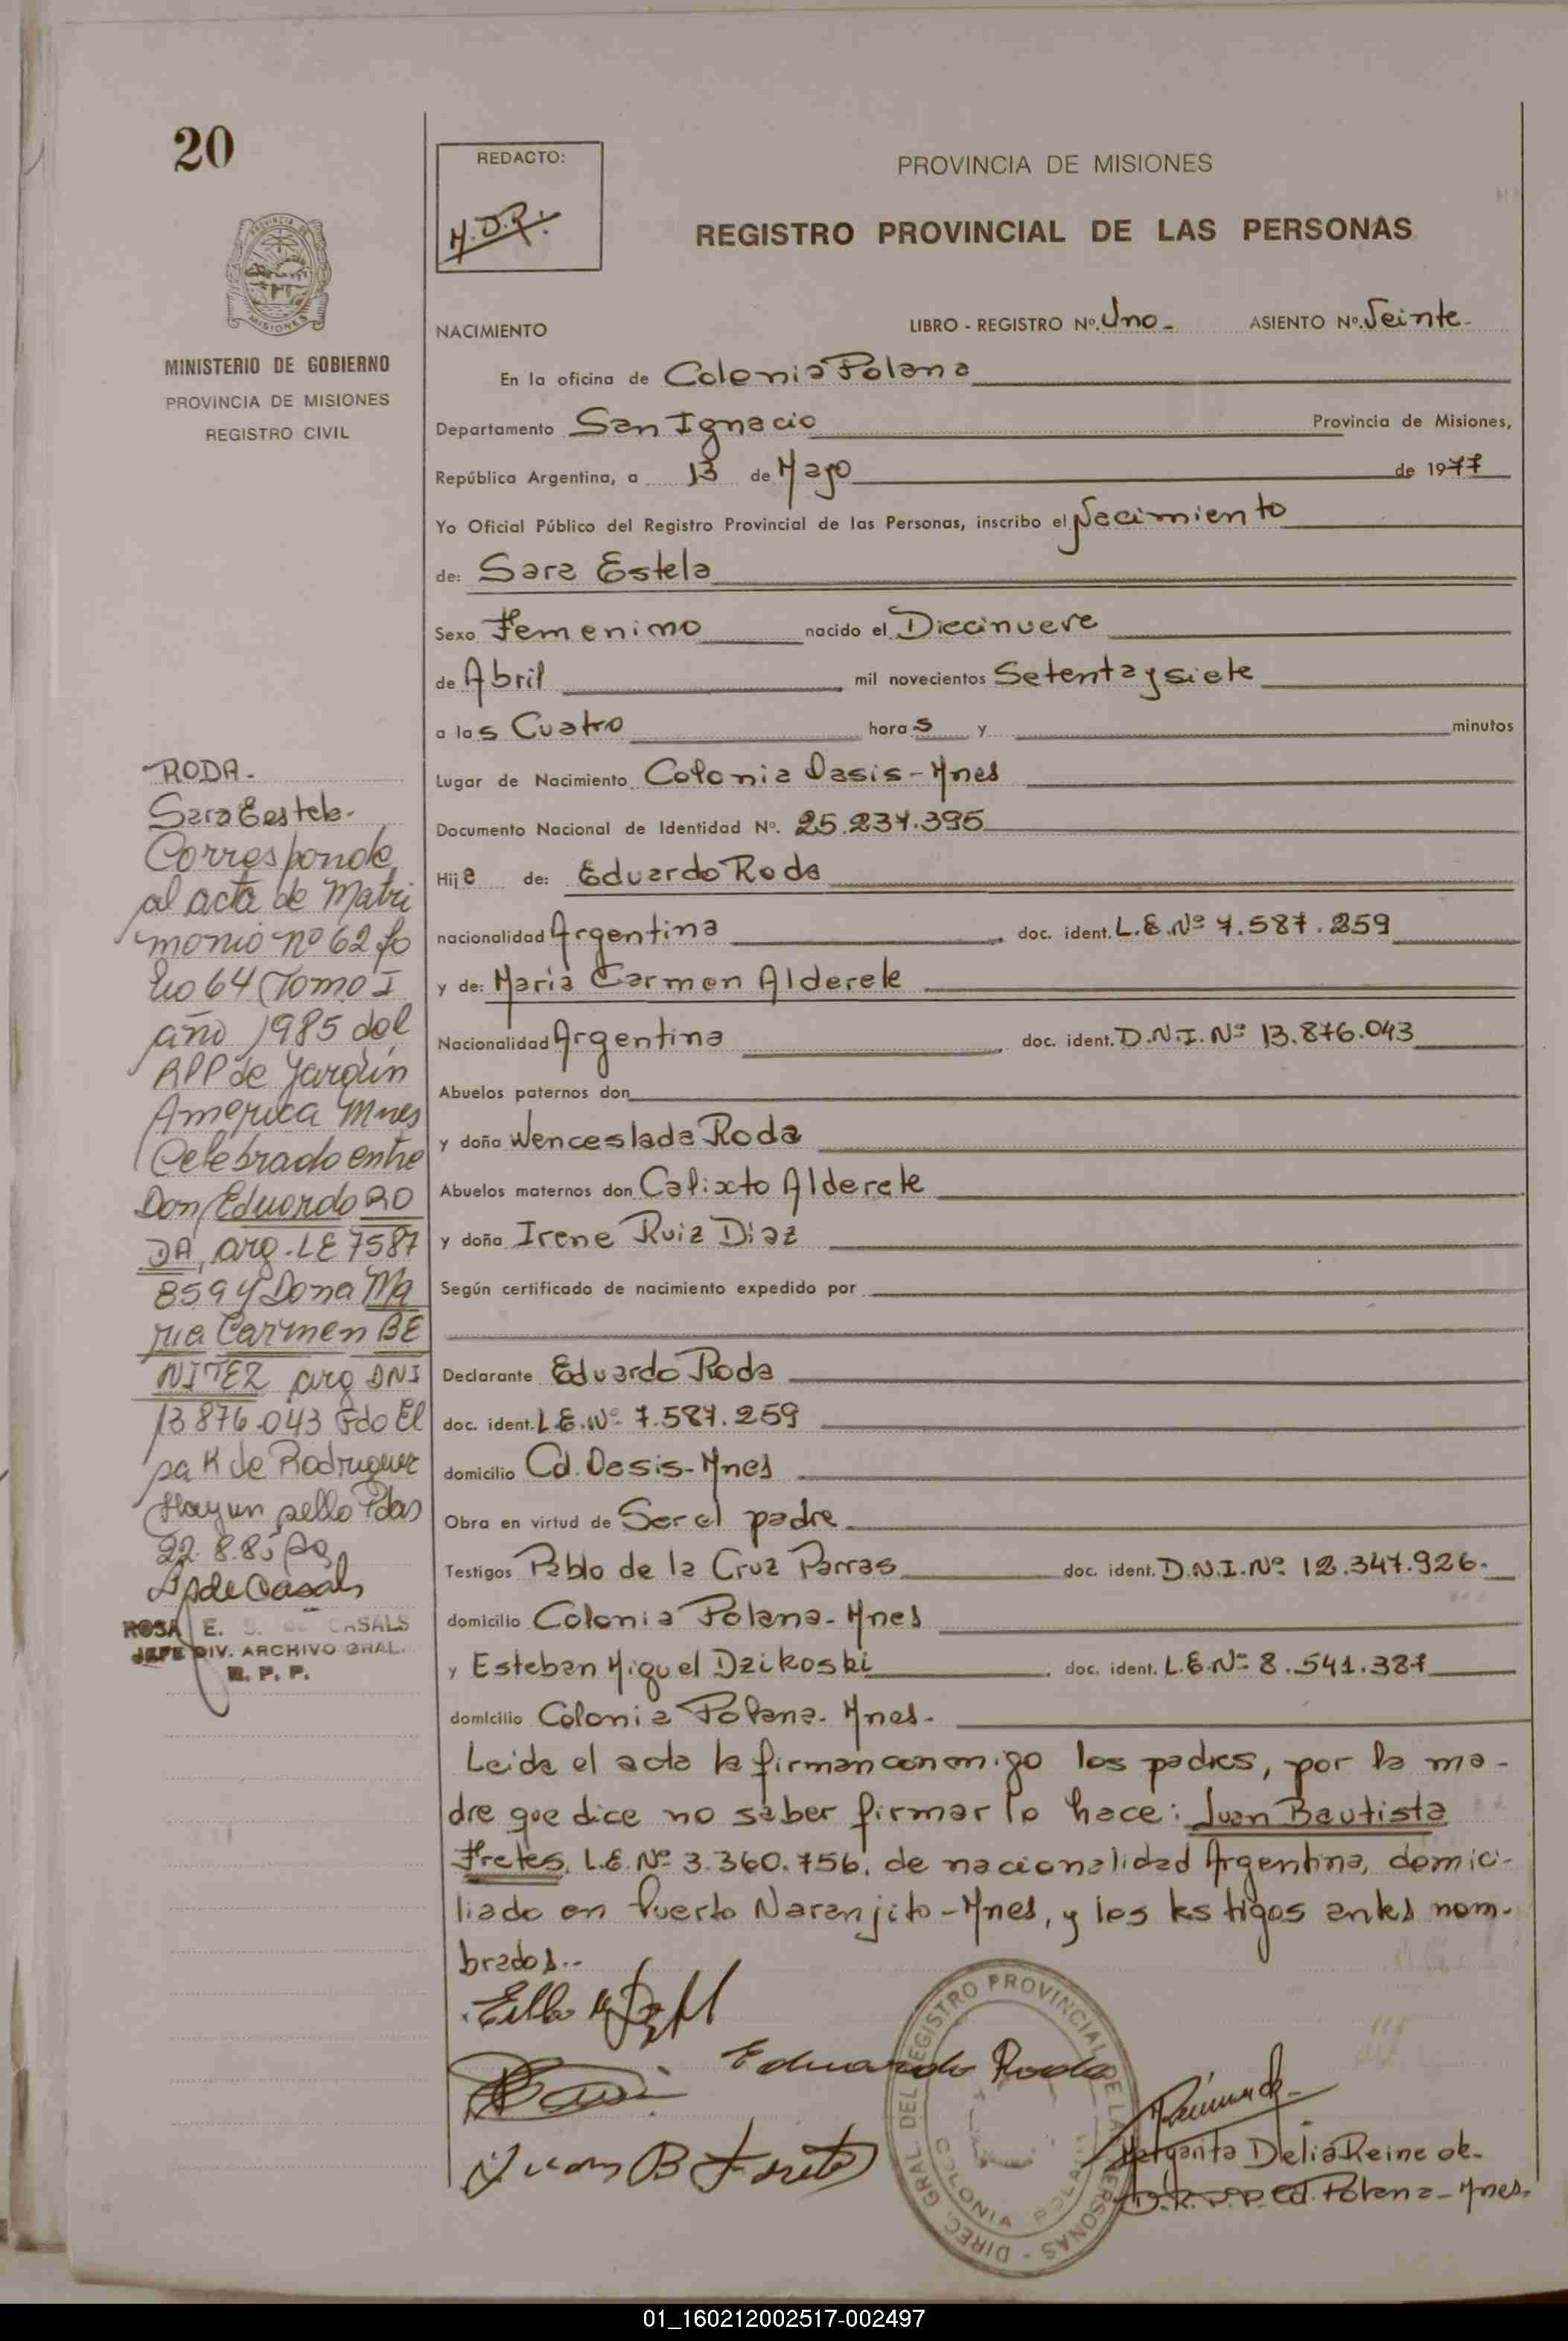 20
PROVINCIA DE
MISIONES
MINISTERIO DE GOBIERNO
PROVINCIA DE MISIONES
REGISTRO CIVIL
REDACTO:
PROVINCIA DE MISIONES
REGISTRO PROVINCIAL DE LAS PERSONAS
NACIMIENTO LIBRO - REGISTRO Nº. Uno.- ASIENTO Nº. Veinte.-
En la oficina de Colonia Polana
Departamento San Ignacio Provincia de Misiones,
República Argentina, a 13 de Mayo de 1977
Yo Oficial Público del Registro Provincial de las Personas, inscribo el Nacimiento
de: Sara Estela
Sexo Femenimo nacido el Diecinueve
de Abril mil novecientos Setenta y siete
a las Cuatro horas y minutos
Lugar de Nacimiento Colonia Oasis-Mnes
Documento Nacional de Identidad Nº. 25.237.395
Hija de: Eduardo Roda
nacionalidad Argentina doc. ident. L.E.Nº 7.587.259
y de: Maria Carmen Alderete
Nacionalidad Argentina doc. ident. D.N.I. Nº 13.876.043
Abuelos paternos don
y doña Wenceslada Roda
Abuelos maternos don Calixto Alderete
y doña Irene Ruiz Diaz
Según certificado de nacimiento expedido por
Declarante Eduardo Roda
doc. ident. L.E.Nº 7.587.259
domicilio Cd. Oasis-Mnes
Obra en virtud de Ser el padre.
Testigos Pablo de la Cruz Parras doc. ident. D.N.I.Nº 12.347.926.
domicilio Colonia Polana-Mnes
y Esteban Miguel Dzikoski doc. ident. L.E.Nº 8.541.387
domicilio Colonia Polana-Mnes-
Leida el acta la firman conmigo los padres, por la ma-
dre que dice no saber firmar lo hace: Juan Bautista
Fretes, L.E.Nº 3.360.756, de nacionalidad Argentina, domici-
liado en Puerto Naranjito-Mnes, y los testigos antes nom-
brados.-
Eduardo Roda
Juan B Fretes
DIREC. GRAL DEL REGISTRO PROVINCIAL DE LAS PERSONAS -
COLONIA POLANA
Margarita Delia Reine de-
D.R.P.P. Cd. Polana-Mnes.
RODA.-
Sara Eestela-
Corresponde
al acta de Matri
monio nº 62 fo
lio 64 (Tomo I
año 1985 del
RPP de Jardin
America Mnes
Celebrado entre
Don Eduardo RO
DA, arg.LE 7587
859 y Dona Ma
ria Carmen BE
NITEZ arg DNI
13876.043 Fdo El
sa K de Rodriguez
Hay un sello Pdas
22.8.85
de Casals
ROSA E. CASALS
JEFE DIV. ARCHIVO GRAL.
R. P. P.
01_160212002517-002497